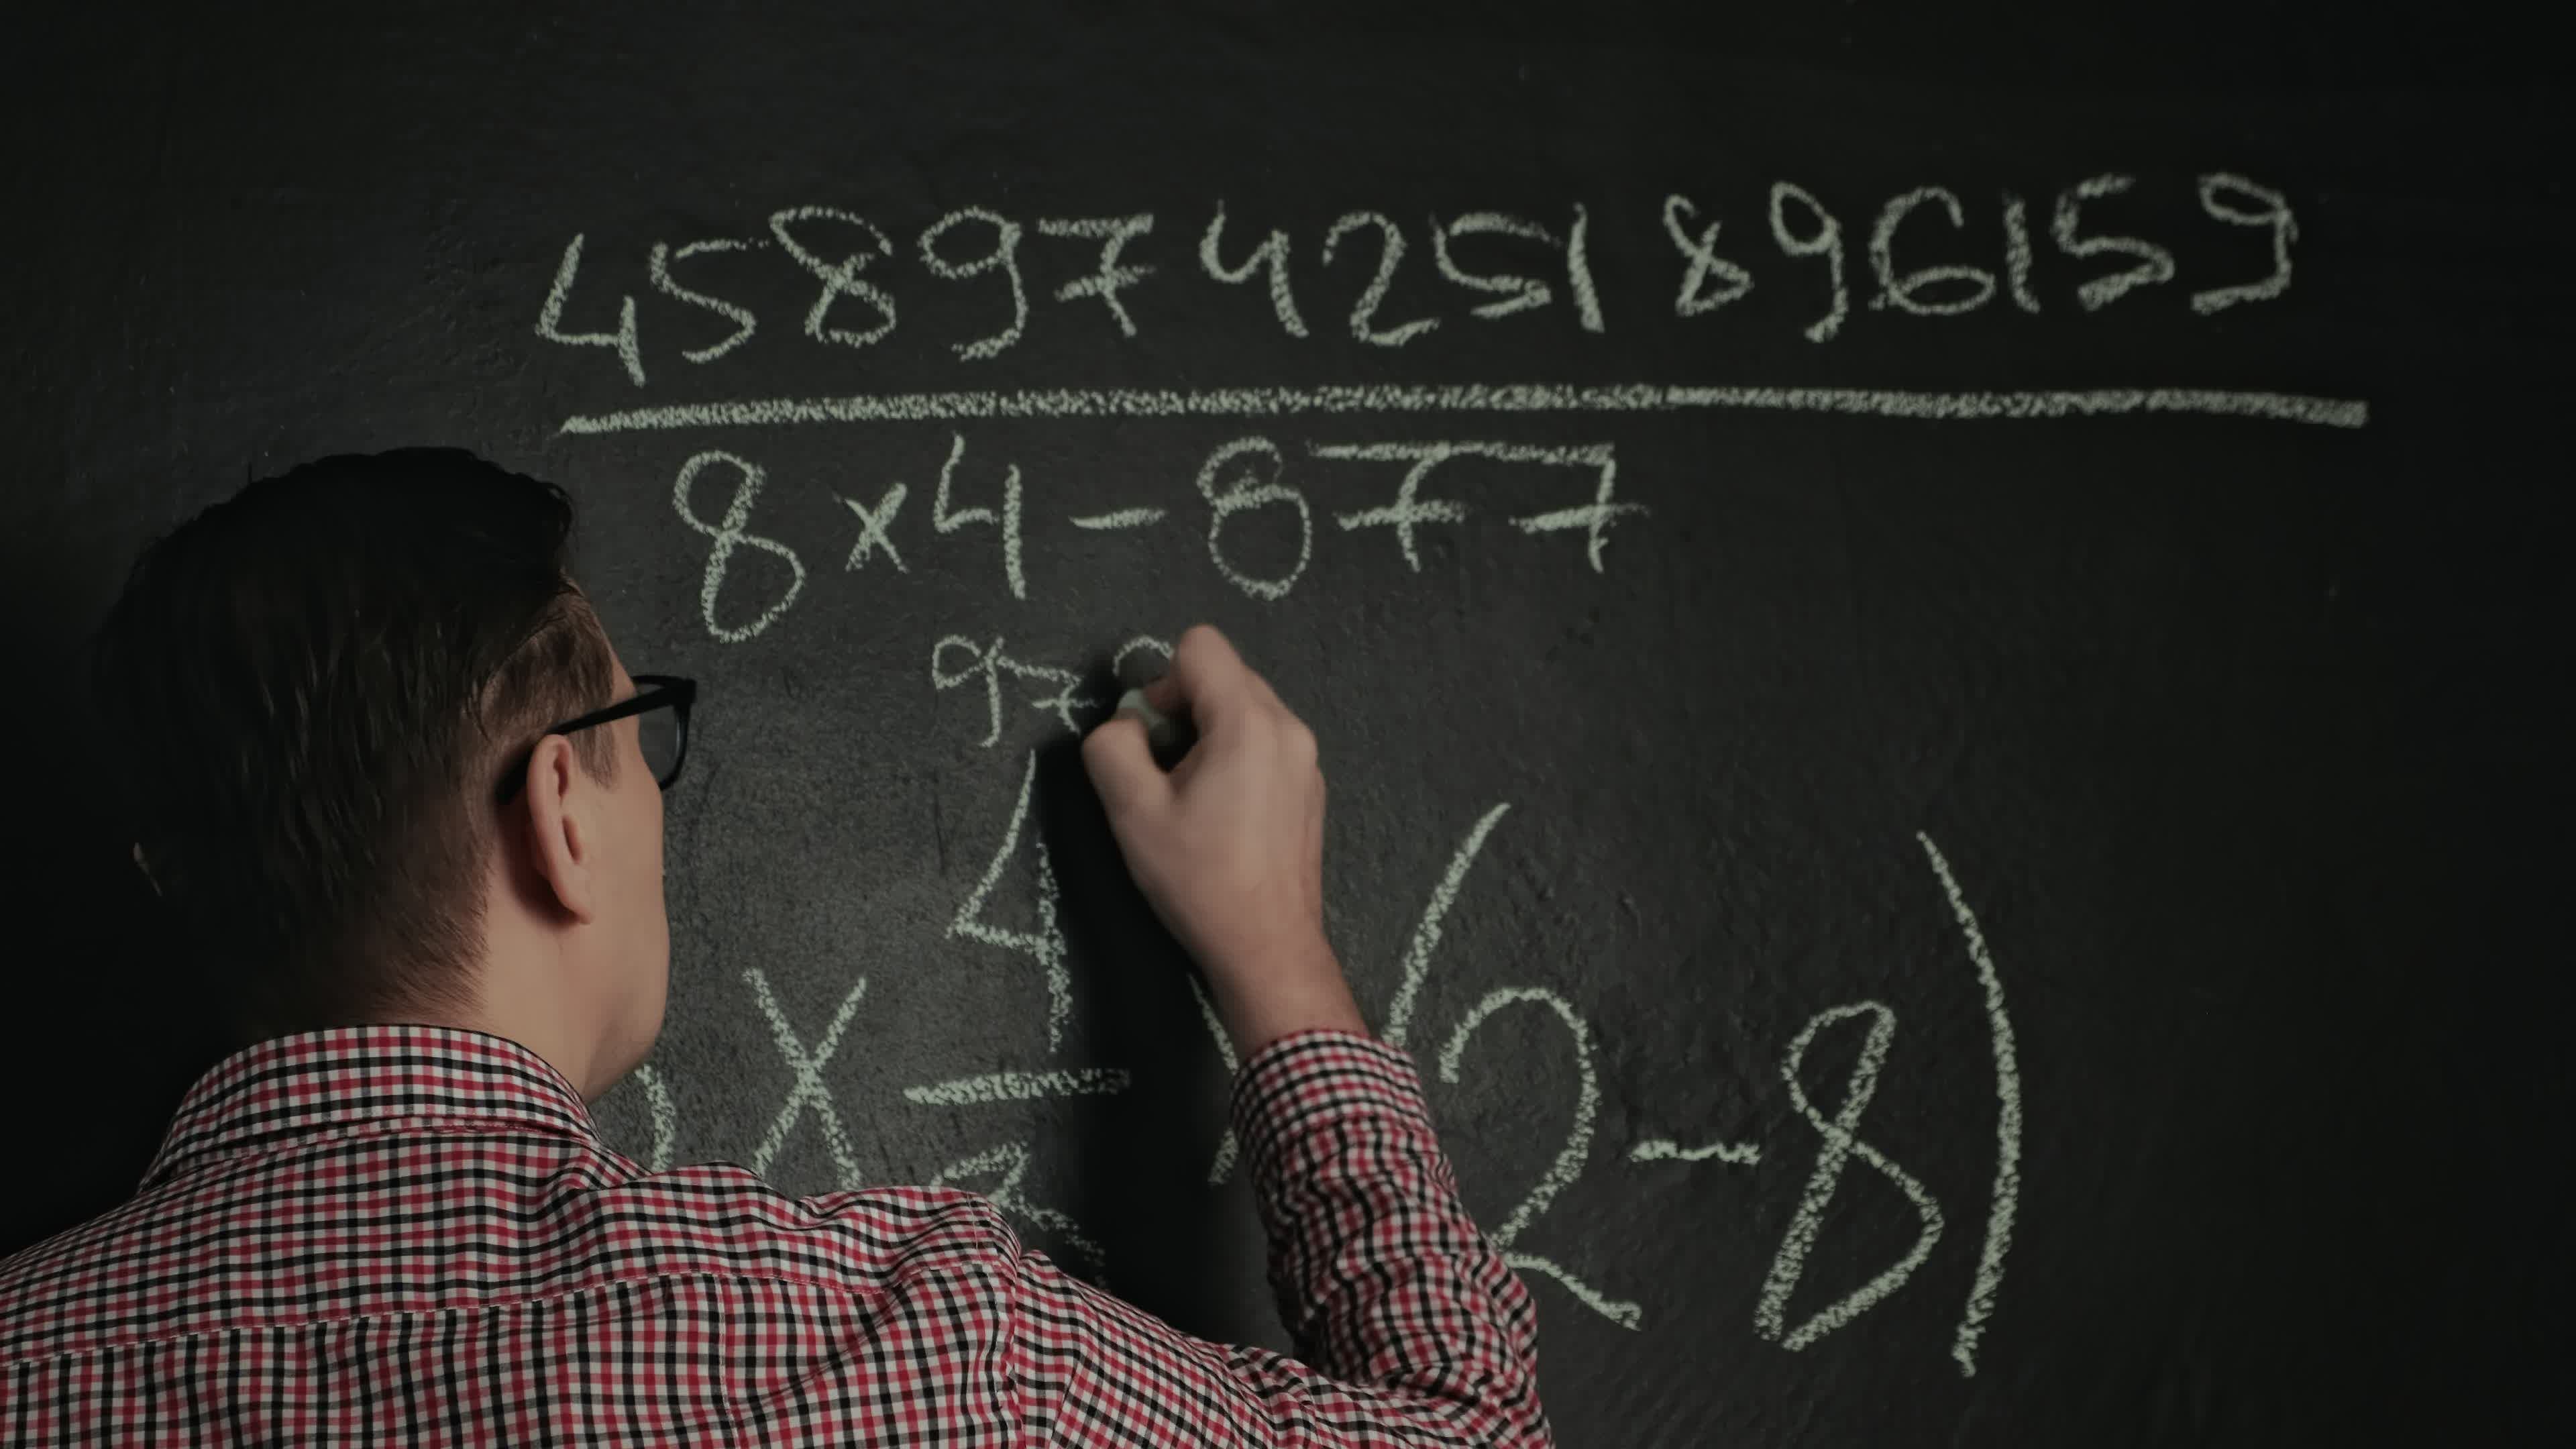 45897425189 6159
8×4-877
97
4
X — (2-8)